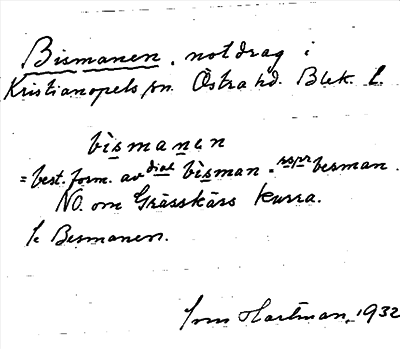 Bismanen, notdrag i
Kristianopels sn. Östra hd. Blek. l.
bismanen
= best. form. av dial bisman = rspr besman.
NO. om Grässkärs Kurra.
Se Besmanen.
Hartman, 1932